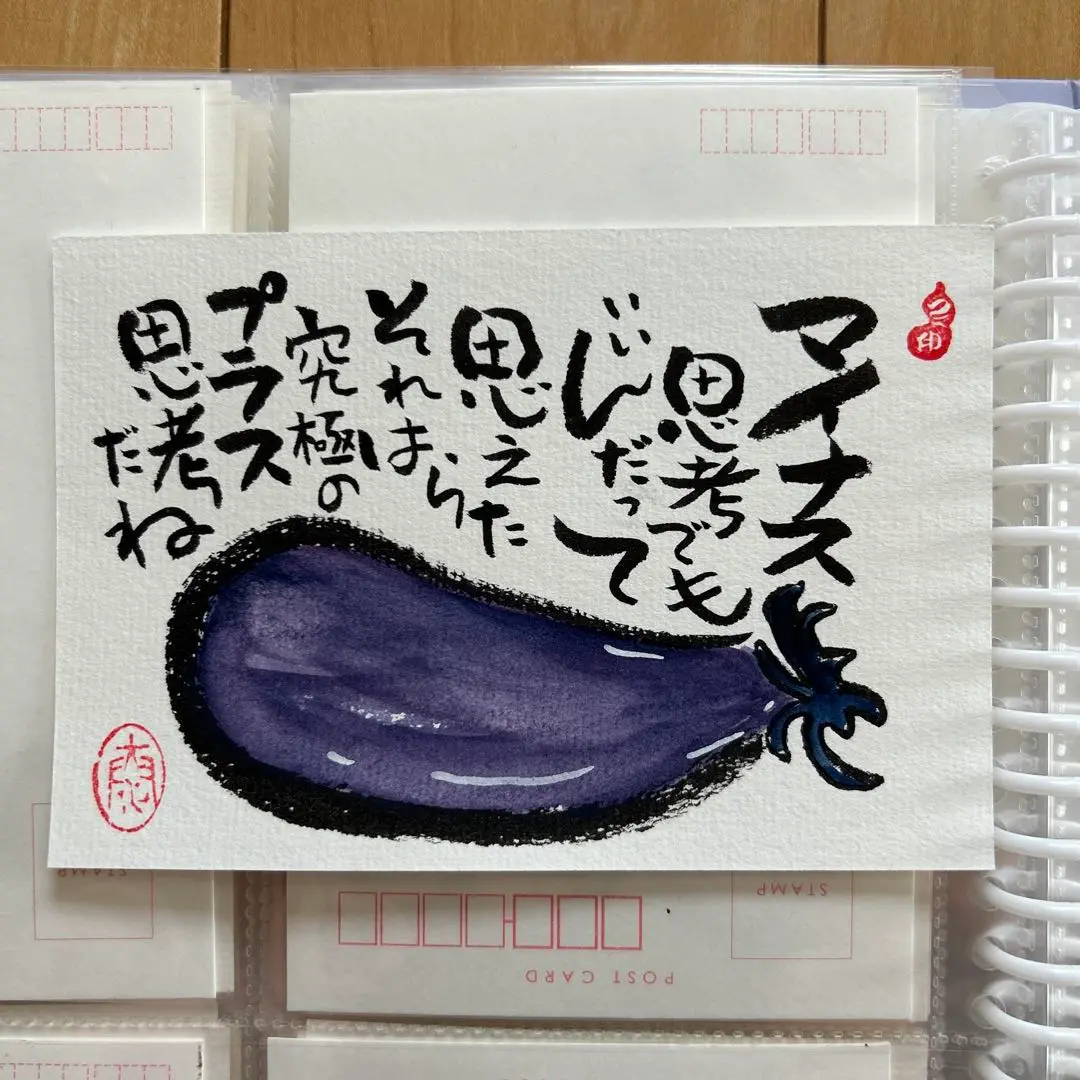 マイナス
思考でも
いいんだって
思えた
ら
それは
究極の
プラス
思考
だね
STAMP
STAMP
POST CARD